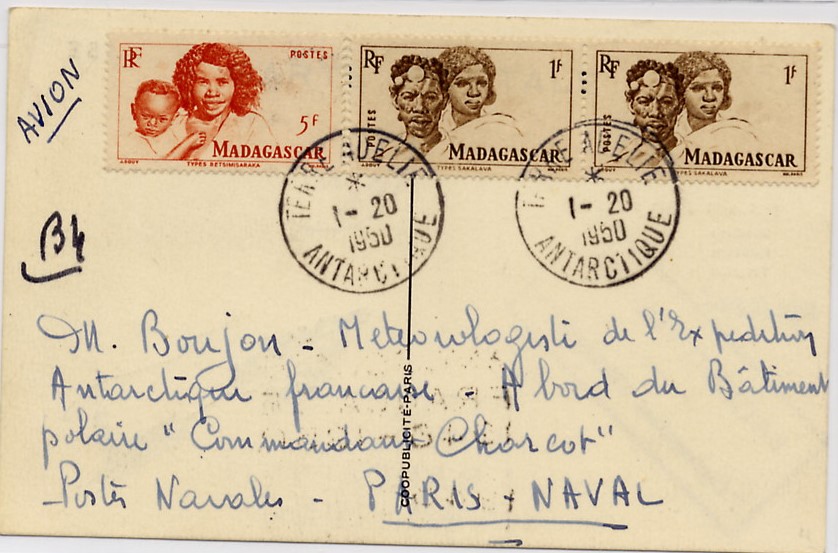 AVION
B4
RF POSTES
5F
MADAGASCAR
TYPES BETSIMISARAKA
RF 1F
POSTES
MADAGASCAR
TYPES SAKALAVA
RF 1F
POSTES
MADAGASCAR
TYPES SAKALAVA
TERRE ADELIE
1-20
1950
ANTARCTIQUE
TERRE ADELIE
1-20
1950
ANTARCTIQUE
M. Boujon - Meteorologiste de l'Expedition
Antarctique francaise - A bord du Bâtiment
polaire "Commandant Charcot"
Postes Navales - PARIS-NAVAL
COOPUBLICITÉ-PARIS